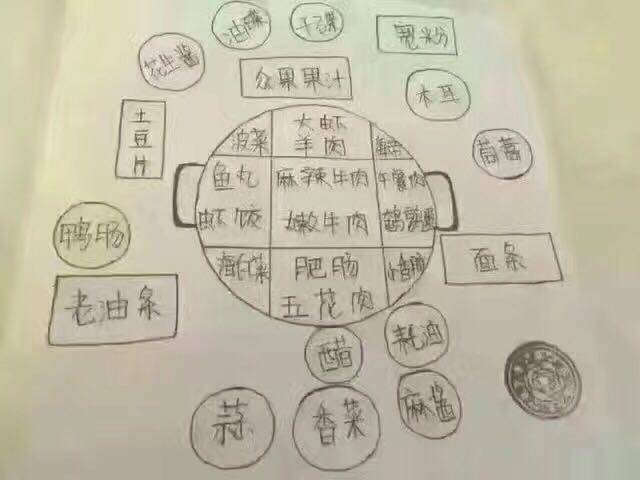 油碟
干碟
宽粉
花生酱
苹果果汁
木耳
土豆片
茼蒿
大虾
羊肉
菠菜
海带
鱼丸
麻辣牛肉
午餐肉
虾饺
嫩牛肉
鹌鹑蛋
鸭肠
面条
肥肠
五花肉
老油条
醋
耗油
麻酱
蒜
香菜